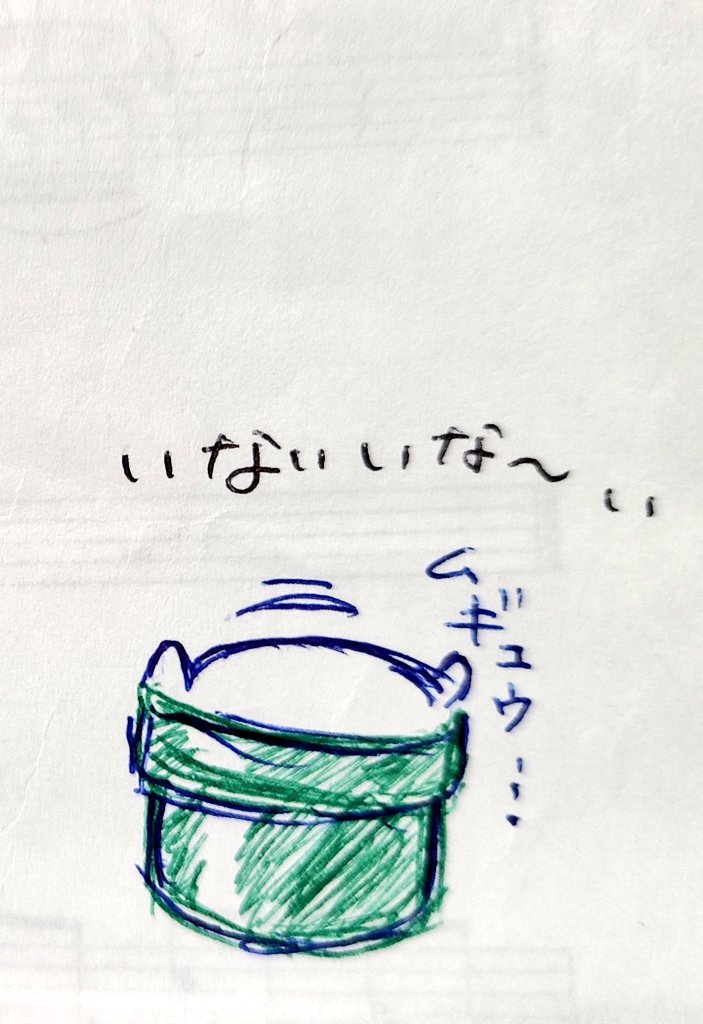 いないいな～い
ムギュウ…